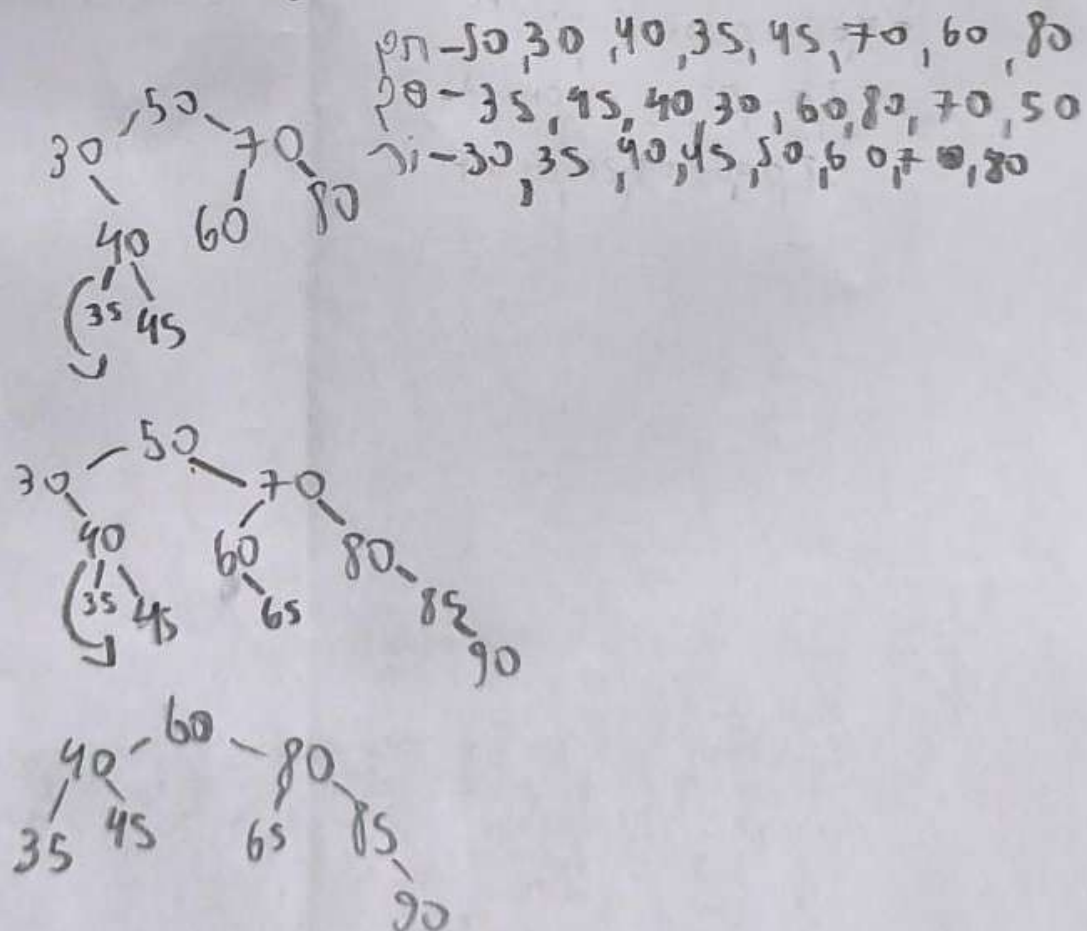 pn-50,30,40,35,45,70,60,80
po-35,45,40,30,60,80,70,50
ni-30,35,40,45,50,60,70,80
50
30 70
40 60 80
35 45
50
30 70
40 60 80
35 45 65 85
90
60
40 80
35 45 65 85
90